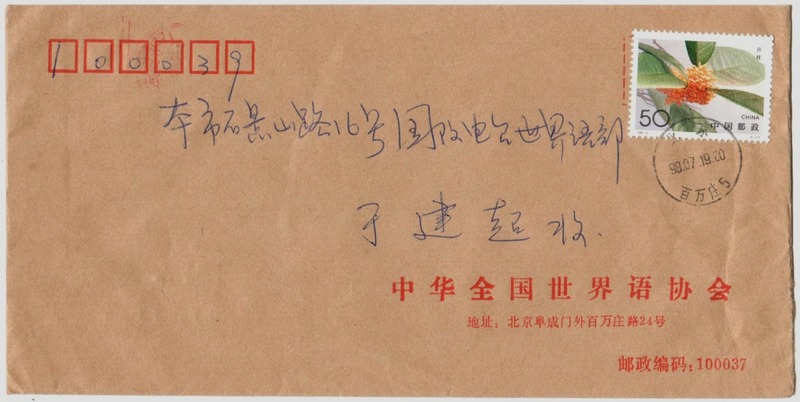 100039
50
丹桂
CHINA
中国邮政
本市石景山路16号国际电台世界语部
98.07.19.20
百万庄5
于建起收.
中华全国世界语协会
地址：北京阜成门外百万庄路24号
邮政编码：100037